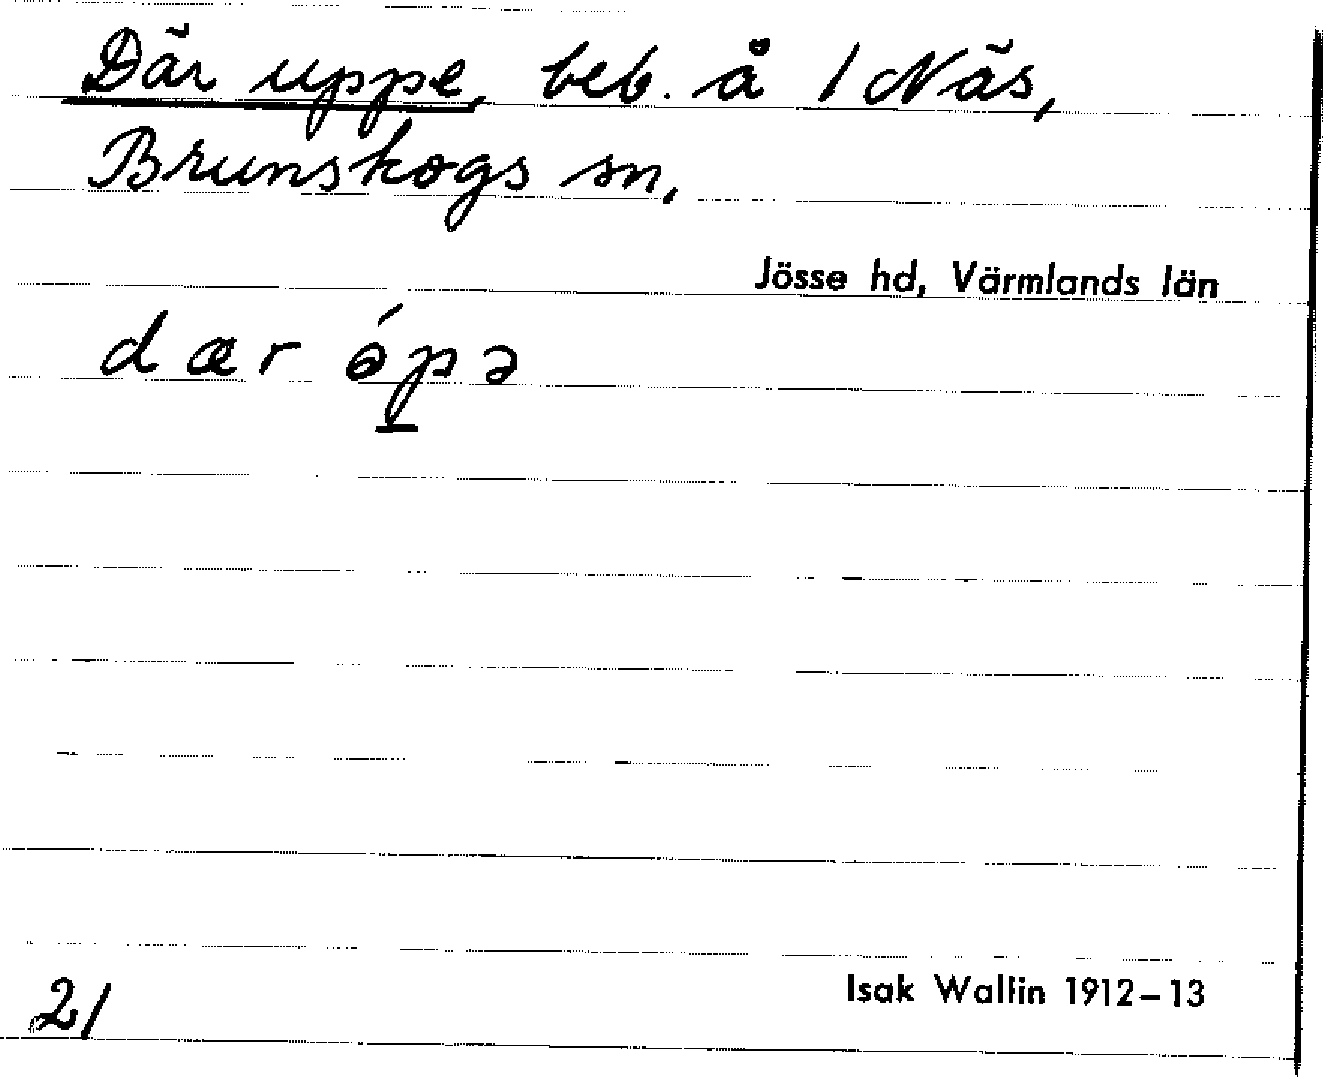 Där uppe, beb. å 1 Näs,
Brunskogs sn,
Jösse hd, Värmlands län
dær ópə
21
Isak Wallin 1912–13